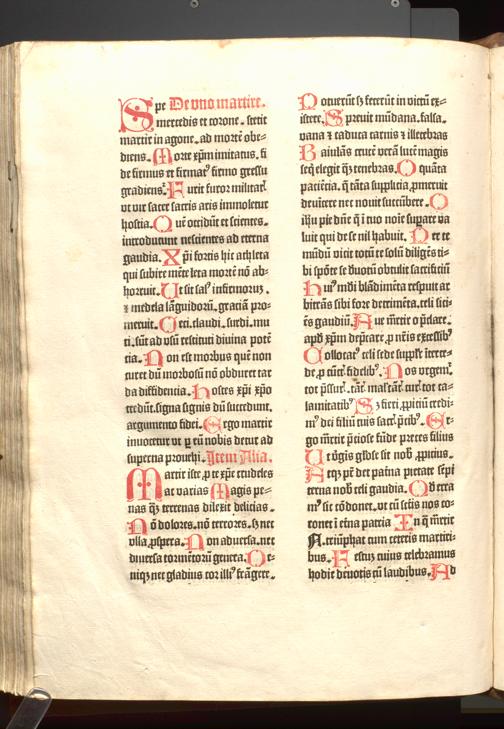 Spe De vno martire.
mercedis et corone. stetit
martir in agone. ad mortē obe-
diens. Morte xp̄m imitatus. fi
de firmus et firmat᷒ firmo gressu
gradiens. Furit furor militaris
vt vir sacer sacris aris immoletur
hostia. Quē occidūt et scientes.
introducunt nescientes ad eterna
gaudia. Xp̄i fortis hic athleta
qui subire mēte leta mortē nō ab-
horruit. Ut sit sal᷒ infirmoruꝫ.
⁊ medela lāguidorū. graciā pro-
meruit. Ceci. claudi. surdi. mu
ti. sūt ad vsū restituti diuina potē
tia. Non est morbus quē non
curet dū morbosū nō obduret tar
da diffidencia. Hostes xp̄i xp̄o
credūt. signa signis dū succedunt.
argumento fidei. Ergo martir
inuocetur vt ꝑ eū nobis detur ad
superna prouehi. Item Alia.
Martir iste. ꝓ te xp̄e crudeles
ac varias Magis pe-
nas ꝗ̄ terrenas dilexit delicias.
Nō dolores. nō terrores. sꝫ nec
vlla ꝓspera. Non aduersa. nec
diuersa tormētorū genera. De-
niqꝫ nec gladius cor illi᷒ frāgere.
Potuerūt sꝫ fecerūt in victū ex-
istere. Spreuit mūdana. falsa.
vana ⁊ caduca carnis ⁊ illecebras
Baiulās crucē verā lucē magis
seq̄ elegit ꝗ̄ tenebras. O quāta
paciēcia. ꝗ tāta supplicia. ꝓmeruit
deuincere nec nouit succūbere. O
ih̄u pie dn̄e ꝗ i tuo noīe supare va
luit qui de se nil habuit. Per te
mūdū vicit totū te solū diligēs ti-
bi spōte se deuotū obtulit sacrificiū
Hui᷒ mūdi blādimēta respuit ar
bitrās sibi fore detrimēta. celi sici-
ēs gaudiū. Aue mr̄tir o p̄clare.
apd xp̄m dep̄care. ꝓ nr̄is excessib᷒
Collocat᷒ celi sede supp̄lr
de. ꝓ cūct᷒ fidelib᷒. Nos
tot p̄ssur̄. tāt᷒ tur᷒ tot ca-
lamitatib᷒ Sꝫ fieri. ꝓpiciū credi-
m᷒ dei filiū tuis sacr᷒ p̄cib᷒. Er-
go mr̄tir p̄ciose fūde preces filius
Ut vg̅is gl̅ose sit nob᷒ ꝓpicius.
Atqꝫ ꝑ dei patris pietate sēpi
terna nob᷒ celi gaudia. Qd terra
m᷒ sic cōdonet. vt cū sctīs nos co-
ronet i etn̄a patria In ꝗ mr̄tir
N. triūphat cum ceteris martiri-
bus. Festuꝫ cuius celebramus
hodie deuotis cū laudibus. Ad